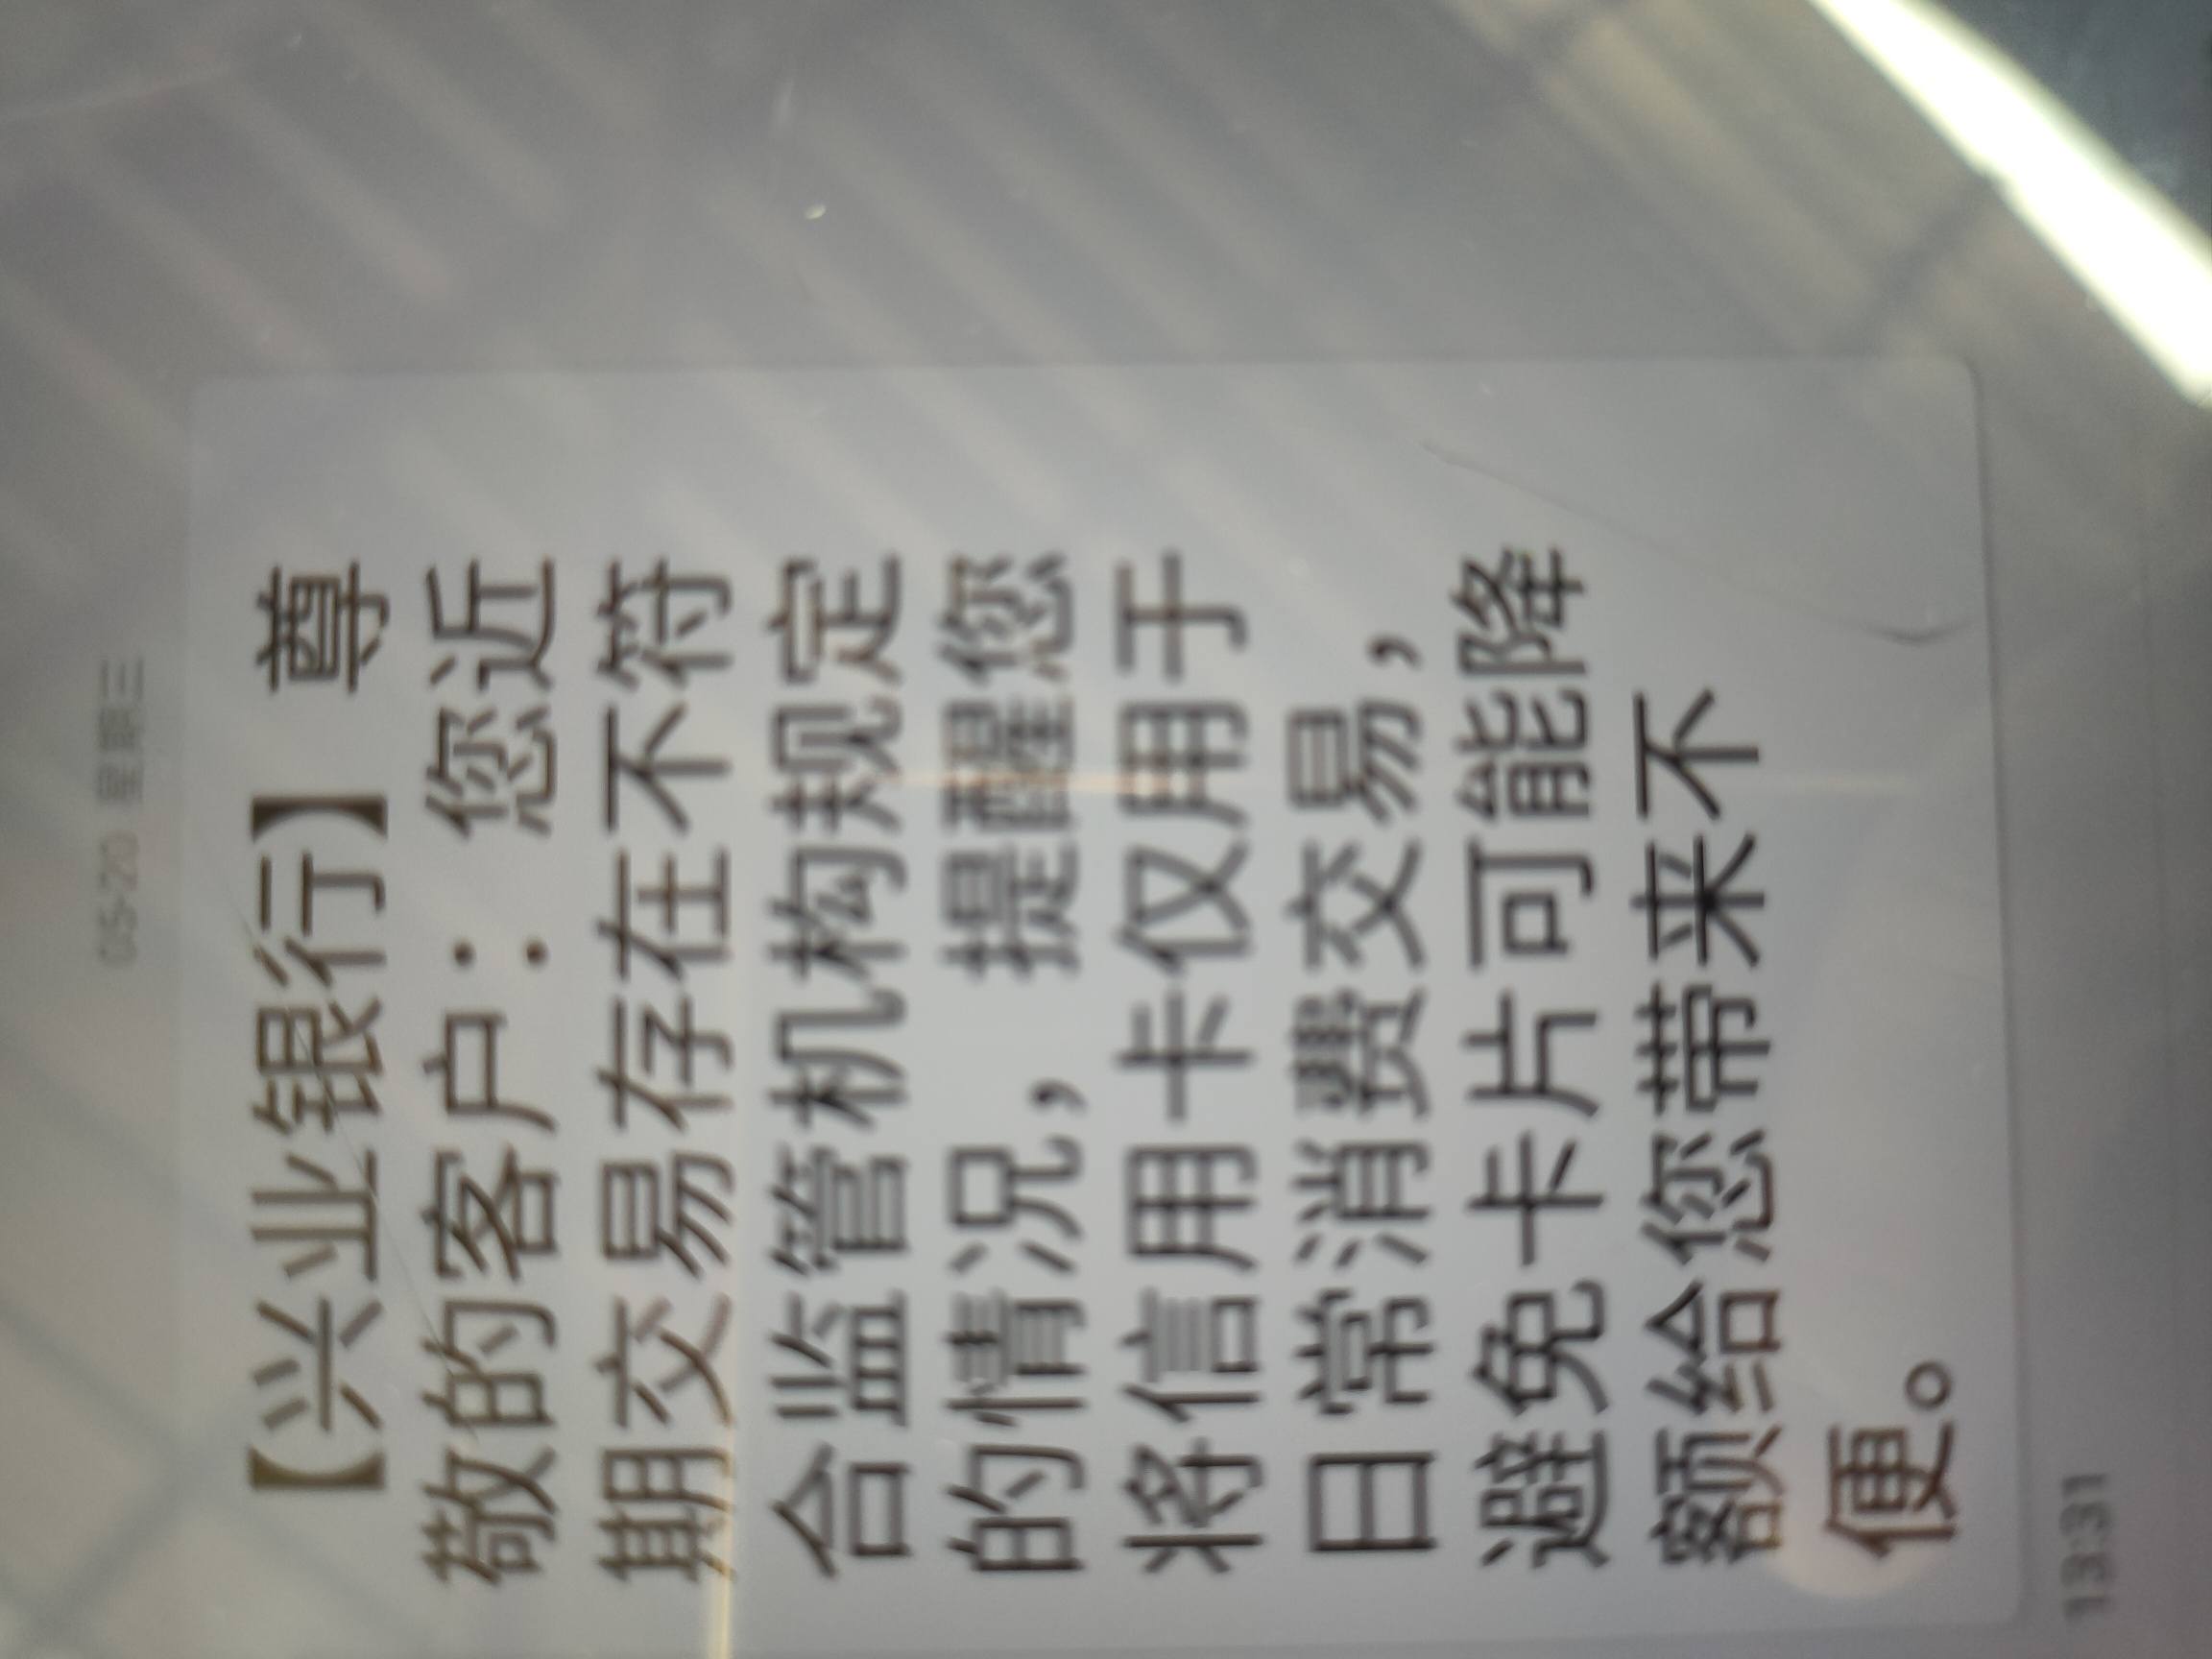 05-20 星期三
【兴业银行】 尊
敬的客户：您近
期交易存在不符
合监管机构规定
的情况， 提醒您
将信用卡仅用于
日常消费交易，
避免卡片可能降
额给您带来不
便。
13:31